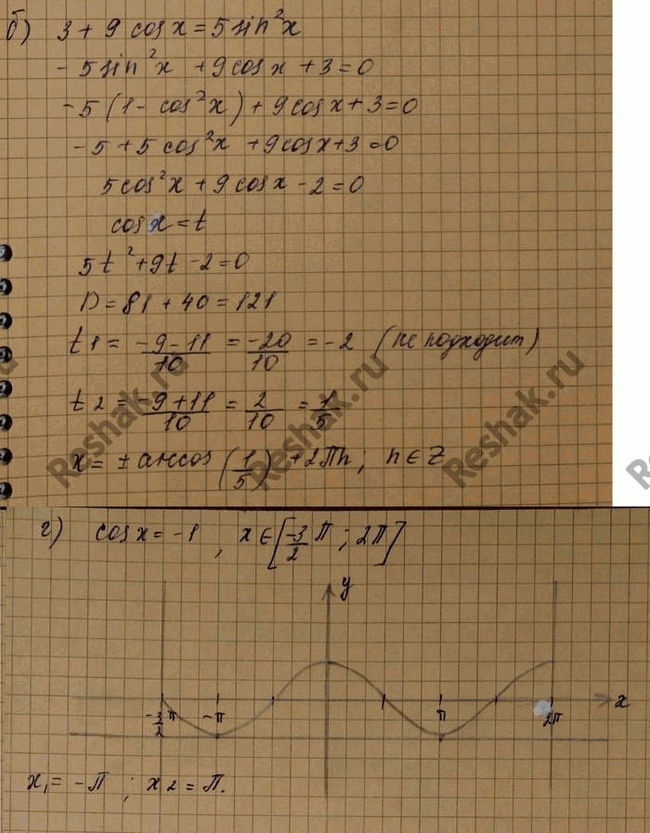 б) 3 + 9 cos x = 5 sin²x
- 5 sin²x + 9 cos x + 3 = 0
-5 (1 - cos²x) + 9 cos x + 3 = 0
-5 + 5 cos²x + 9 cos x + 3 = 0
5 cos²x + 9 cos x - 2 = 0
cos x = t
5t² + 9t - 2 = 0
D = 81 + 40 = 121
t1 = (-9-11)/10 = -20/10 = -2 (не подходит)
t2 = (-9+11)/10 = 2/10 = 1/5
x = ± arccos (1/5) + 2πn; n ∈ Z
Reshak.ru
Reshak.ru
г) cos x = -1, x ∈ [-3/2 π; 2π]
y
x
-3/2 π -π π 2π
x₁ = -π; x2 = π.